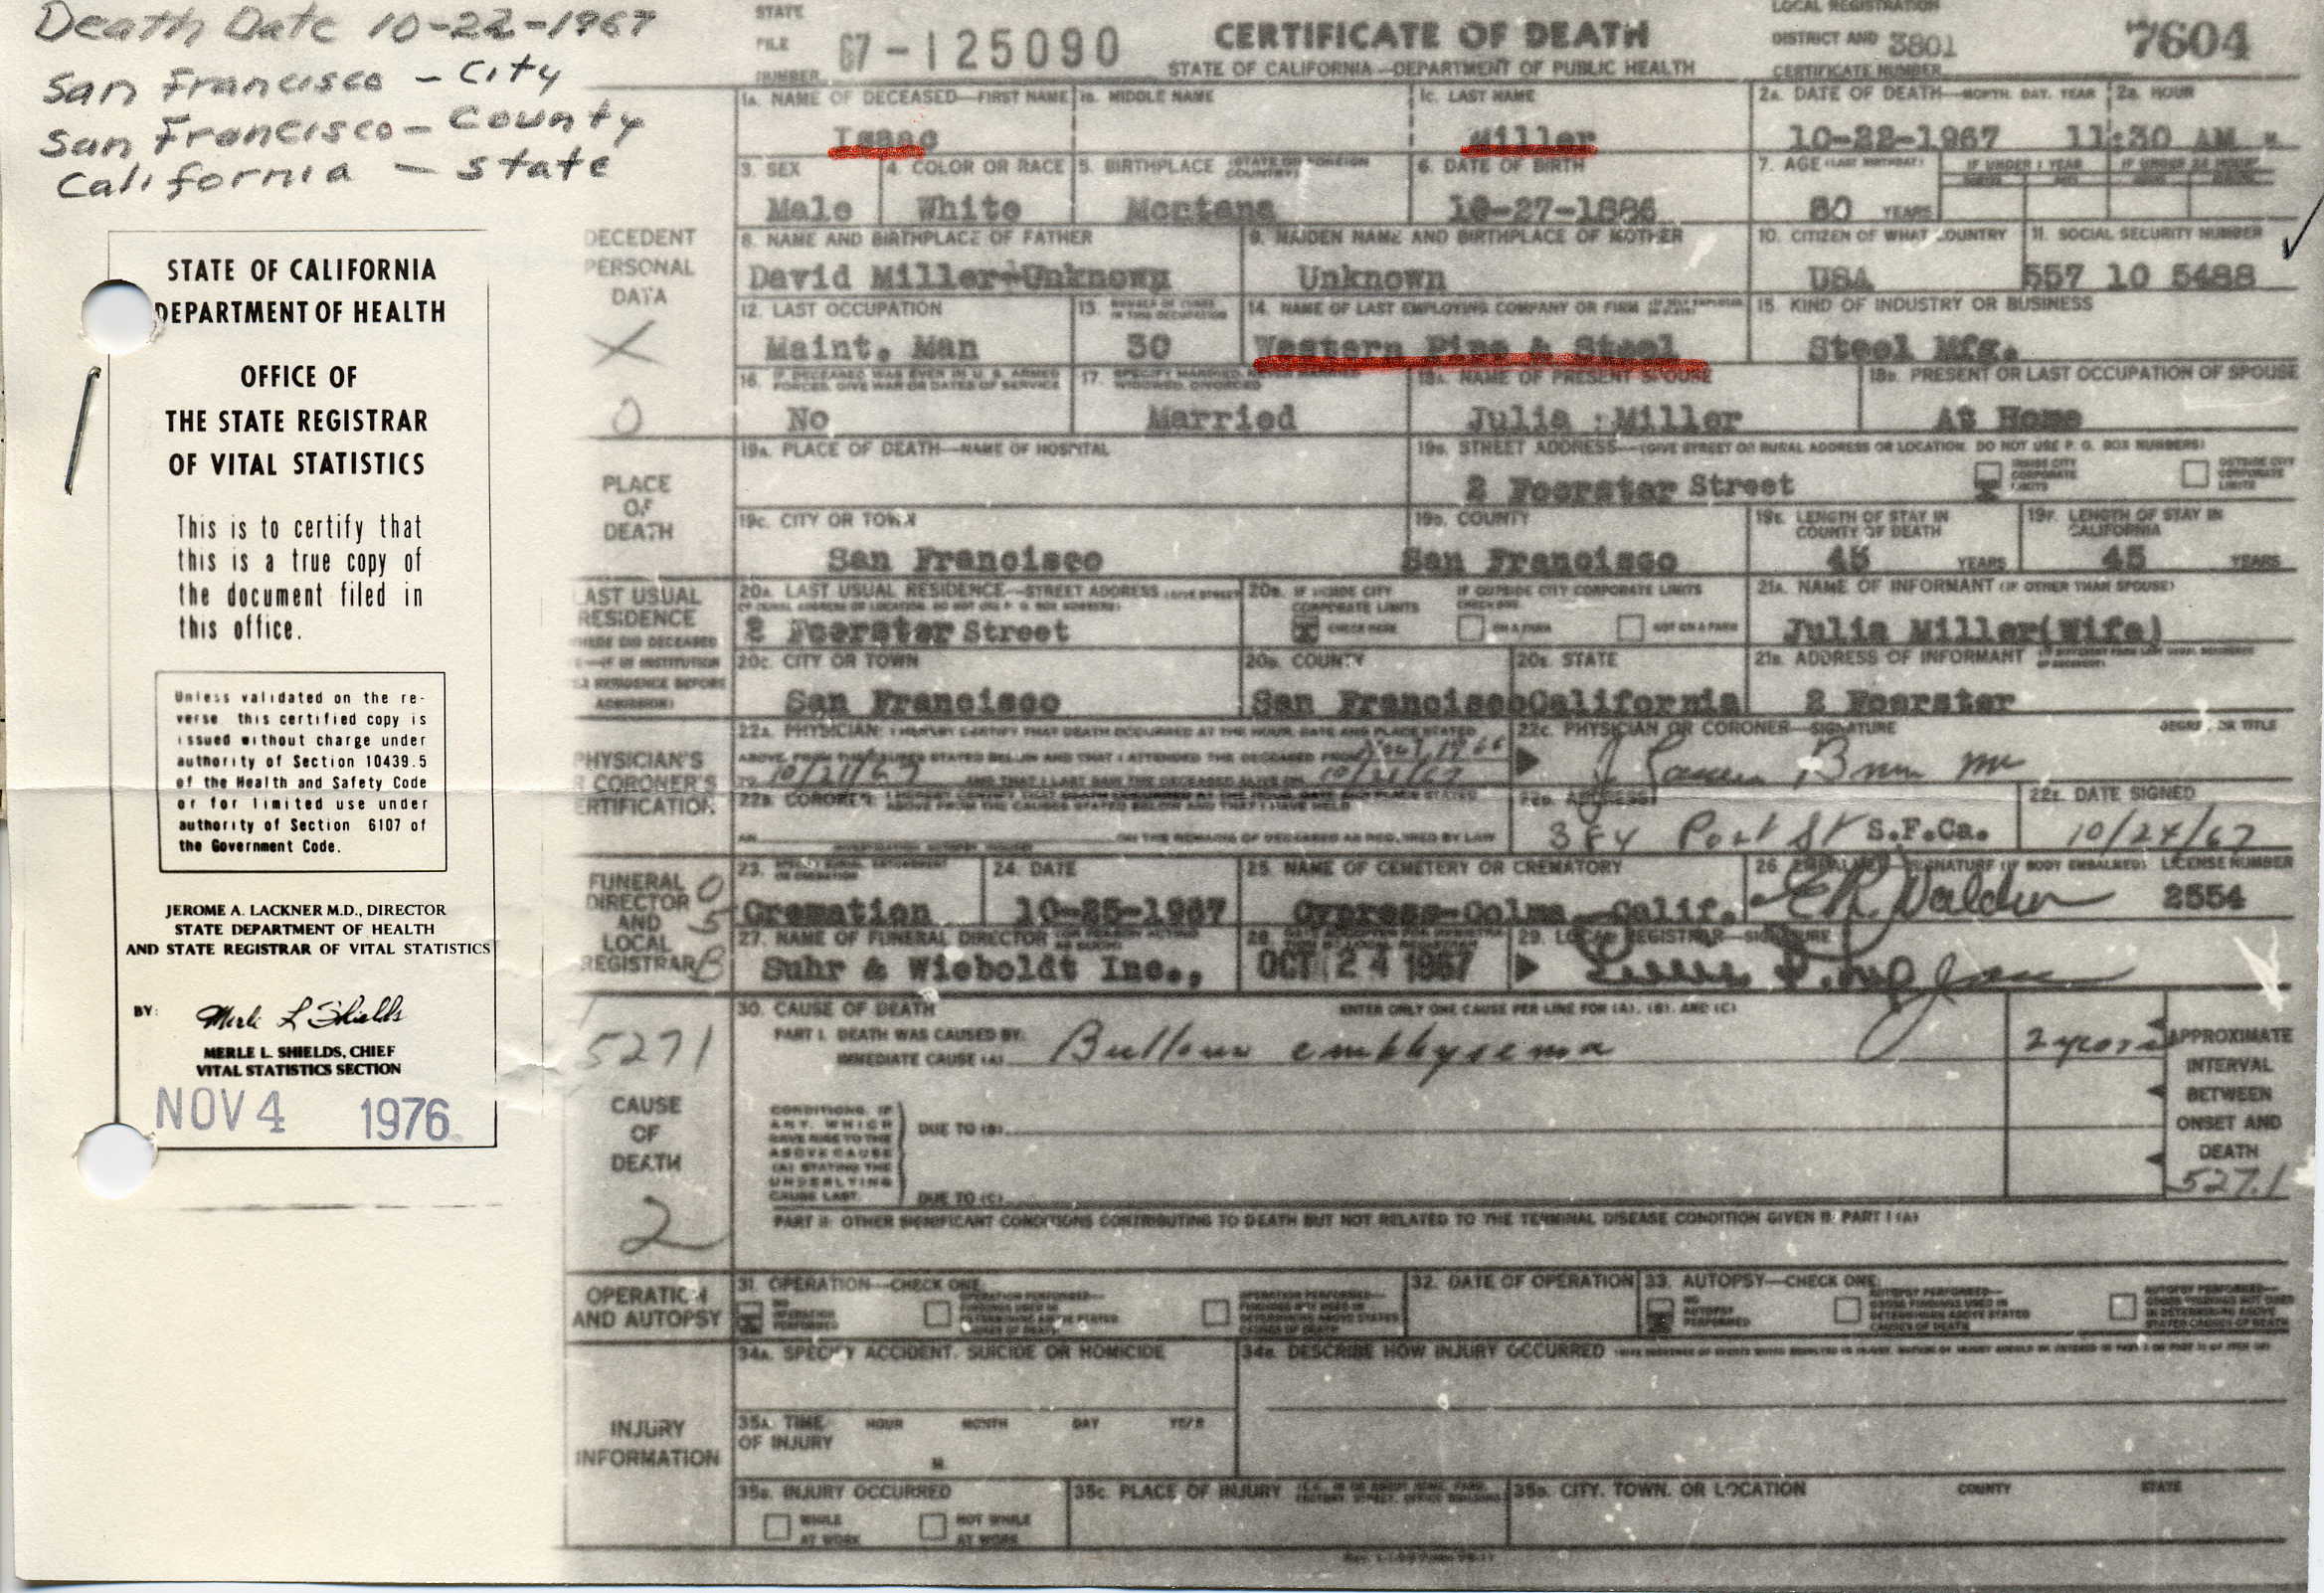 Death Date 10-22-1967
San Francisco - City
San Francisco - County
California - State
STATE OF CALIFORNIA
DEPARTMENT OF HEALTH
OFFICE OF
THE STATE REGISTRAR
OF VITAL STATISTICS
This is to certify that
this is a true copy of
the document filed in
this office.
Unless validated on the re-
verse this certified copy is
issued without charge under
authority of Section 10439.5
of the Health and Safety Code
or for limited use under
authority of Section 6107 of
the Government Code.
JEROME A. LACKNER M.D., DIRECTOR
STATE DEPARTMENT OF HEALTH
AND STATE REGISTRAR OF VITAL STATISTICS
BY: Merle L Shields
MERLE L. SHIELDS, CHIEF
VITAL STATISTICS SECTION
NOV 4 1976
STATE FILE NUMBER 67-125090
CERTIFICATE OF DEATH
STATE OF CALIFORNIA—DEPARTMENT OF PUBLIC HEALTH
LOCAL REGISTRATION DISTRICT AND CERTIFICATE NUMBER 3801 7604
DECEDENT PERSONAL DATA
1A. NAME OF DECEASED—FIRST NAME 1B. MIDDLE NAME 1C. LAST NAME 2A. DATE OF DEATH—MONTH, DAY, YEAR 2B. HOUR
Isaac Miller 10-22-1967 11:30 AM M
3. SEX 4. COLOR OR RACE 5. BIRTHPLACE (STATE OR FOREIGN COUNTRY) 6. DATE OF BIRTH 7. AGE (LAST BIRTHDAY) IF UNDER 1 YEAR IF UNDER 24 HOURS
Male White Montana 10-27-1886 80 YEARS
8. NAME AND BIRTHPLACE OF FATHER 9. MAIDEN NAME AND BIRTHPLACE OF MOTHER 10. CITIZEN OF WHAT COUNTRY 11. SOCIAL SECURITY NUMBER
David Miller-Unknown Unknown USA 557 10 5488
12. LAST OCCUPATION 13. NUMBER OF YEARS IN THIS OCCUPATION 14. NAME OF LAST EMPLOYING COMPANY OR FIRM 15. KIND OF INDUSTRY OR BUSINESS
Maint. Man 30 Western Pipe & Steel Steel Mfg.
16. IF DECEASED WAS EVER IN U.S. ARMED FORCES, GIVE WAR OR DATES OF SERVICE 17. SPECIFY MARRIED, NEVER MARRIED, WIDOWED, DIVORCED 18A. NAME OF PRESENT SPOUSE 18B. PRESENT OR LAST OCCUPATION OF SPOUSE
No Married Julia Miller At Home
PLACE OF DEATH
19A. PLACE OF DEATH—NAME OF HOSPITAL 19B. STREET ADDRESS—(GIVE STREET OR RURAL ADDRESS OR LOCATION. DO NOT USE P. O. BOX NUMBERS)
2 Foerster Street INSIDE CITY CORPORATE LIMITS OUTSIDE CITY CORPORATE LIMITS
19C. CITY OR TOWN 19D. COUNTY 19E. LENGTH OF STAY IN COUNTY OF DEATH 19F. LENGTH OF STAY IN CALIFORNIA
San Francisco San Francisco 45 YEARS 45 YEARS
LAST USUAL RESIDENCE
20A. LAST USUAL RESIDENCE—STREET ADDRESS 20B. IF INSIDE CITY CORPORATE LIMITS CHECK HERE IF OUTSIDE CITY CORPORATE LIMITS CHECK ONE ON A FARM NOT ON A FARM 21A. NAME OF INFORMANT (IF OTHER THAN SPOUSE)
2 Foerster Street Julia Miller(Wife)
20C. CITY OR TOWN 20D. COUNTY 20E. STATE 21B. ADDRESS OF INFORMANT
San Francisco San Francisco California 2 Foerster
PHYSICIAN'S OR CORONER'S CERTIFICATION
22A. PHYSICIAN: I HEREBY CERTIFY THAT DEATH OCCURRED AT THE HOUR, DATE AND PLACE STATED 22C. PHYSICIAN OR CORONER—SIGNATURE DEGREE OR TITLE
ABOVE FROM THE CAUSES STATED BELOW AND THAT I ATTENDED THE DECEASED FROM
TO 10/21/67 AND THAT I LAST SAW THE DECEASED ALIVE ON 10/21/67
22B. CORONER: 22D. ADDRESS 22E. DATE SIGNED
384 Post St S.F.Ca. 10/24/67
FUNERAL DIRECTOR AND LOCAL REGISTRAR
23. 24. DATE 25. NAME OF CEMETERY OR CREMATORY 26. EMBALMER—SIGNATURE (IF BODY EMBALMED) LICENSE NUMBER
Cremation 10-25-1967 Cypress-Colma, Calif. 2554
27. NAME OF FUNERAL DIRECTOR 28. 29. LOCAL REGISTRAR—SIGNATURE
Suhr & Wieboldt Inc., OCT 24 1967
5271
CAUSE OF DEATH
2
30. CAUSE OF DEATH ENTER ONLY ONE CAUSE PER LINE FOR (A), (B), AND (C)
PART I. DEATH WAS CAUSED BY:
IMMEDIATE CAUSE (A) Bullous emphysema 2 years
APPROXIMATE INTERVAL BETWEEN ONSET AND DEATH
527.1
CONDITIONS, IF ANY, WHICH GAVE RISE TO THE ABOVE CAUSE (A) STATING THE UNDERLYING CAUSE LAST.
DUE TO (B)
DUE TO (C)
PART II: OTHER SIGNIFICANT CONDITIONS CONTRIBUTING TO DEATH BUT NOT RELATED TO THE TERMINAL DISEASE CONDITION GIVEN IN PART I (A)
OPERATION AND AUTOPSY
31. OPERATION—CHECK ONE: 32. DATE OF OPERATION 33. AUTOPSY—CHECK ONE:
NO OPERATION PERFORMED NO AUTOPSY PERFORMED
INJURY INFORMATION
34A. SPECIFY ACCIDENT, SUICIDE OR HOMICIDE 34B. DESCRIBE HOW INJURY OCCURRED
35A. TIME OF INJURY HOUR MONTH DAY YEAR
M.
35B. INJURY OCCURRED 35C. PLACE OF INJURY 35D. CITY, TOWN, OR LOCATION COUNTY STATE
WHILE AT WORK NOT WHILE AT WORK